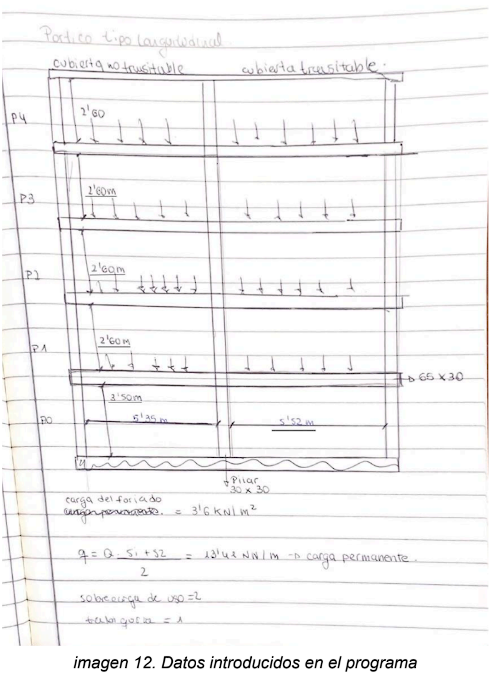 Portico tipo Longitudinal
cubierta no transitable cubierta transitable.
P4
2'60
P3
2'60m
P2
2'60m
P1
2'60m
65 x 30
3'50m
P0
5'35m
5'52m
Pilar
30 x 30
carga del forjado
= 3'6 KN/m²
q = Q · S1 + S2 = 13'42 KN/m → carga permanente.
2
sobrecarga de uso = 2
tabiqueria = 1
imagen 12. Datos introducidos en el programa